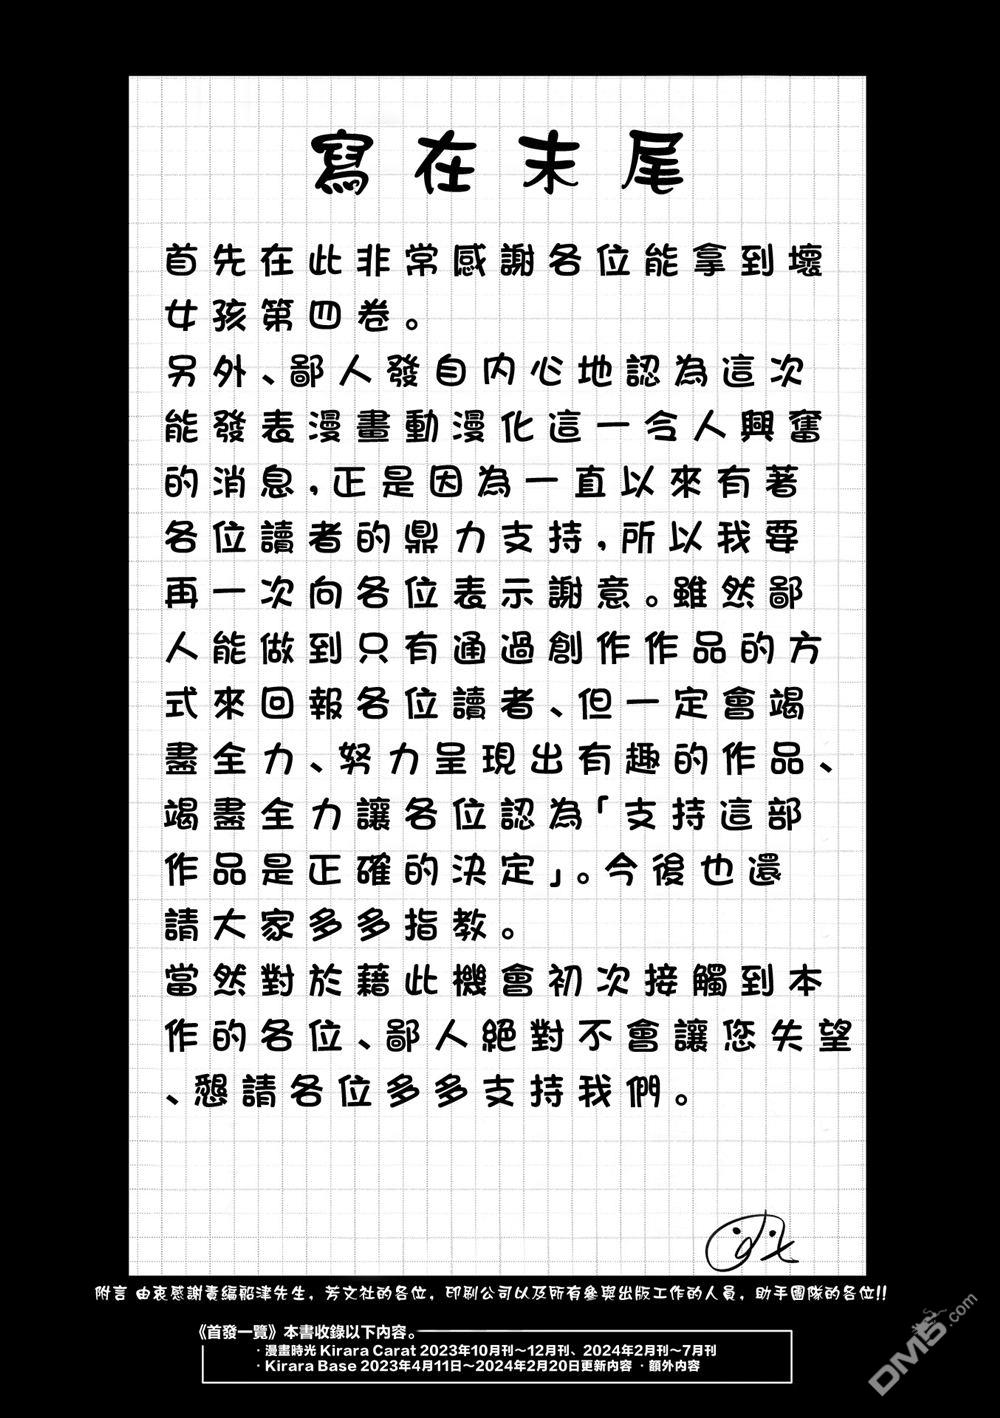 寫在末尾
首先在此非常感謝各位能拿到壞
女孩第四卷。
另外、鄙人發自內心地認為這次
能發表漫畫動漫化這一令人興奮
的消息,正是因為一直以來有著
各位讀者的鼎力支持,所以我要
再一次向各位表示謝意。雖然鄙
人能做到只有通過創作作品的方
式來回報各位讀者、但一定會竭
盡全力、努力呈現出有趣的作品、
竭盡全力讓各位認為「支持這部
作品是正確的決定」。今後也還
請大家多多指教。
當然對於藉此機會初次接觸到本
作的各位、鄙人絕對不會讓您失望
、懇請各位多多支持我們。
附言 由衷感謝責編船津先生，芳文社的各位，印刷公司以及所有參與出版工作的人員，助手團隊的各位!!
《首發一覽》本書收錄以下內容。
·漫畫時光 Kirara Carat 2023年10月刊～12月刊、2024年2月刊～7月刊
·Kirara Base 2023年4月11日～2024年2月20日更新內容 ·額外內容
DM5.com